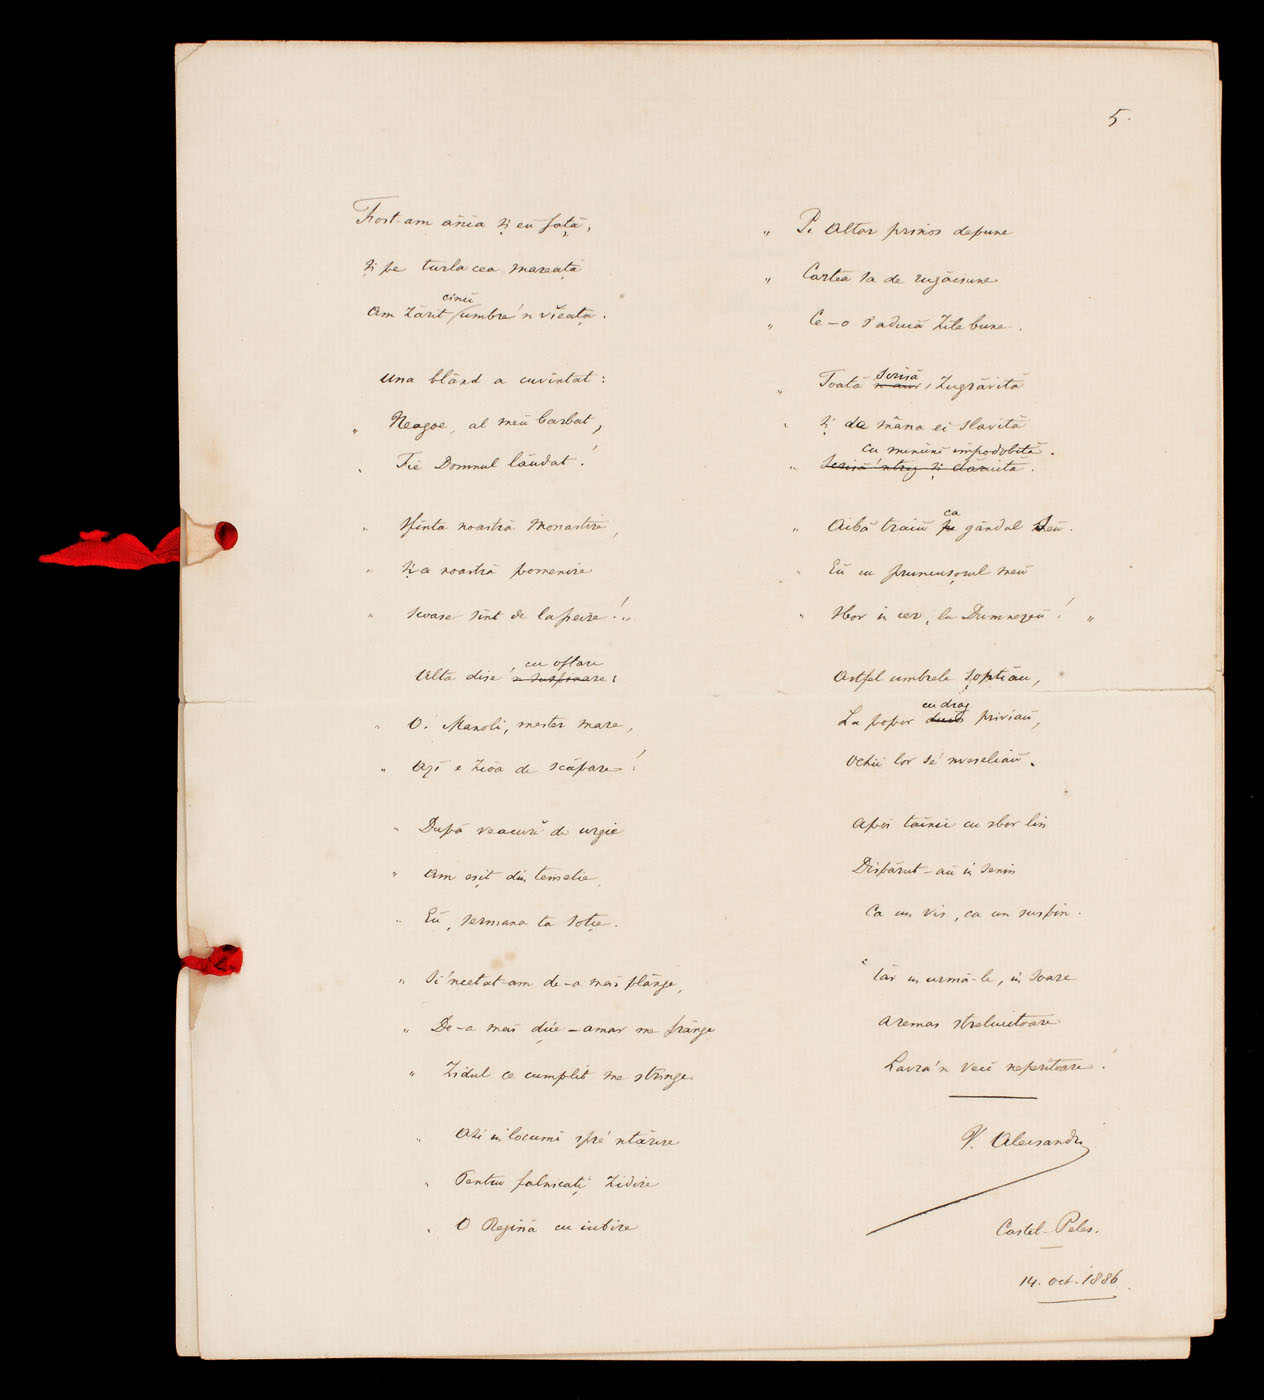 5.
Fost-am atîcia și eŭ față,
Și pe turla cea măreață
cinci
Am zărit umbre'n vieață.
Una blând a cuvîntat:
„ Neagoe, al meŭ barbat,
„ Fie Domnul lăudat!
„ Sfînta noastră Monastire,
„ Și a noastră pomenire
„ Scoase sînt de la peire!„
cu oftare
Alta dise 'n suspinare:
„ O! Manoli, mester mare,
„ Azĭ e zioa de scăpare!
„ După veacurĭ de urgie
„ Am eșit din temelie,
„ Eŭ, sermana ta soție.
„ Și 'ncetat-am de-a maĭ plânge,
„ De-a maĭ dice - amar me frânge
„ Zidul ce cumplit me strînge.
„ Azi în locumĭ spre 'ntărire
„ Pentru falnicațĭ zidire
„ O Regină cu iubire
„ Pe Altar prinos depune
„ Cartea sa de rugăciune
„ Ce-o s'aducă zile bune.
scrisă
„ Toată 'n aur, zugrăvită
„ Și de mâna eĭ slavită
cu minunĭ împodobită.
„ Scrisă 'ntreg și dăruită.
ca
„ Aibă traiŭ pe gândul seŭ.
„ Eŭ cu pruncușorul meŭ
„ Sbor in cer, la Dumnezeŭ! „
Astfel umbrele șoptiau,
cu drag
La popor duios priviaŭ,
Ochiĭ lor se 'nveseliaŭ.
Apoĭ tainic cu sbor lin
Dispărut-aŭ in senin
Ca un vis, ca un suspin.
Iăr in urmă-le, in soare
A remas strelucitoare
Lavra'n vecĭ neperitoare!
V. Alecsandri
Castel-Peles.
14. Oct. 1886.